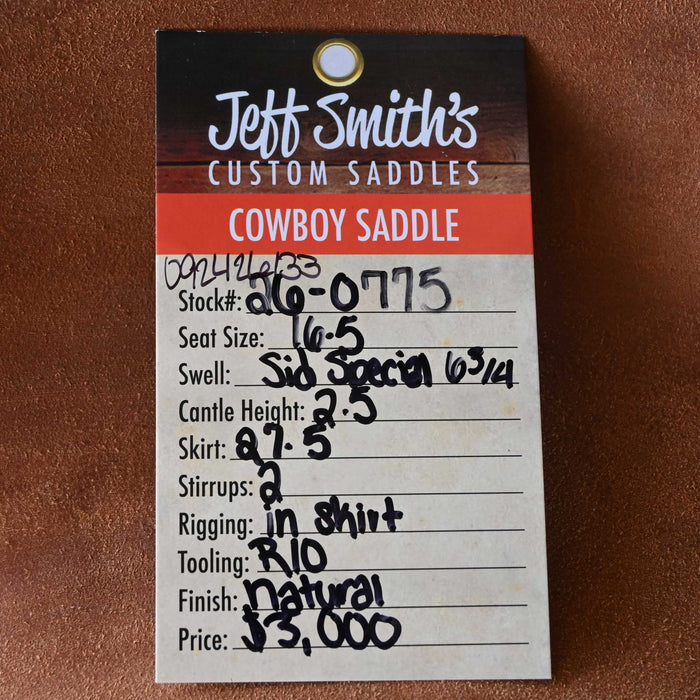 Jeff Smith's
CUSTOM SADDLES
COWBOY SADDLE
Stock#: 26-0775
Seat Size: 16.5
Swell: Sid Special 6 3/4
Cantle Height: 2.5
Skirt: 27.5
Stirrups: 2
Rigging: in skirt
Tooling: R10
Finish: natural
Price: $3,000